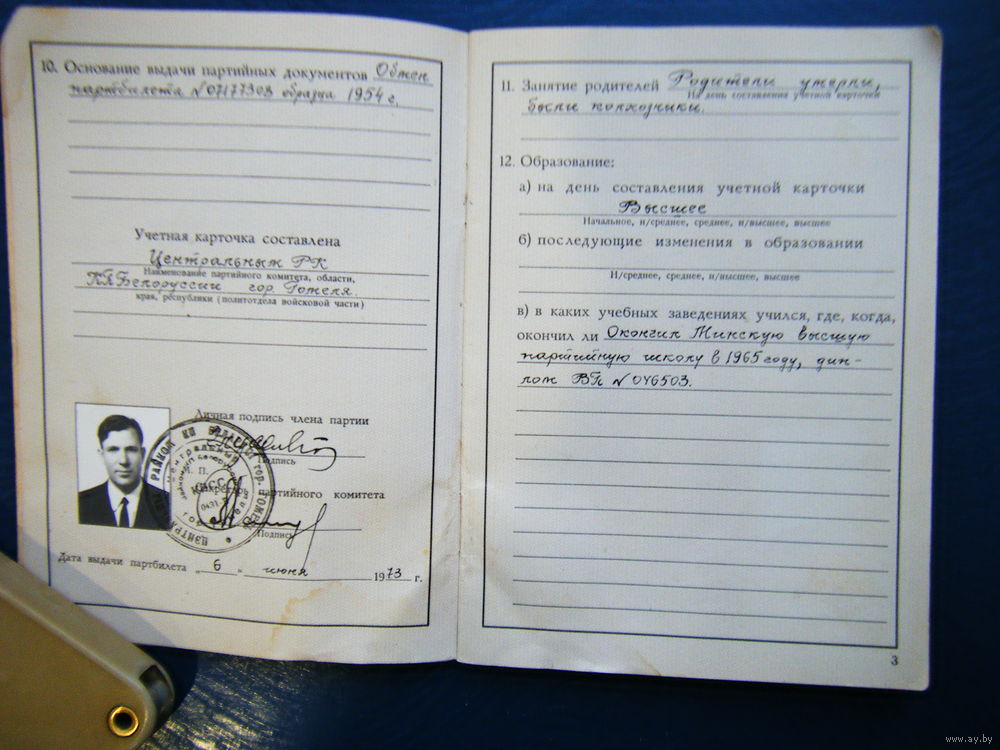 10. Основание выдачи партийных документов Обмен
партбилета №07177303 образца 1954 г.
Учетная карточка составлена
Центральным РК
Наименование партийного комитета, области,
КП Белоруссии гор. Гомеля.
края, республики (политотдела войсковой части)
Личная подпись члена партии
Подпись
М. П.
Секретарь партийного комитета
Подпись
Дата выдачи партбилета „ 6 “ июня 1973 г.
РАЙКОМ КП
КПСС
11. Занятие родителей Родители умерли,
На день составления учетной карточки
были колхозники.
12. Образование:
а) на день составления учетной карточки
Высшее
Начальное, н/среднее, среднее, н/высшее, высшее
б) последующие изменения в образовании
Н/среднее, среднее, н/высшее, высшее
в) в каких учебных заведениях учился, где, когда,
окончил ли Окончил Минскую высшую
партийную школу в 1965 году, дип-
лом ВПк № 046503.
3
www.ay.by